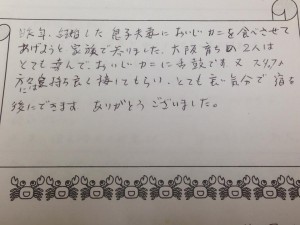 昨年、結婚した息子夫妻においしいカニを食べさせて
あげようと家族で参りました。大阪育ちの2人は
とても喜んで、おいしいカニに舌鼓です。又スタッフの
方々には気持ち良く接してもらい、とても良い気分で宿を
後にできます ありがとうございました。